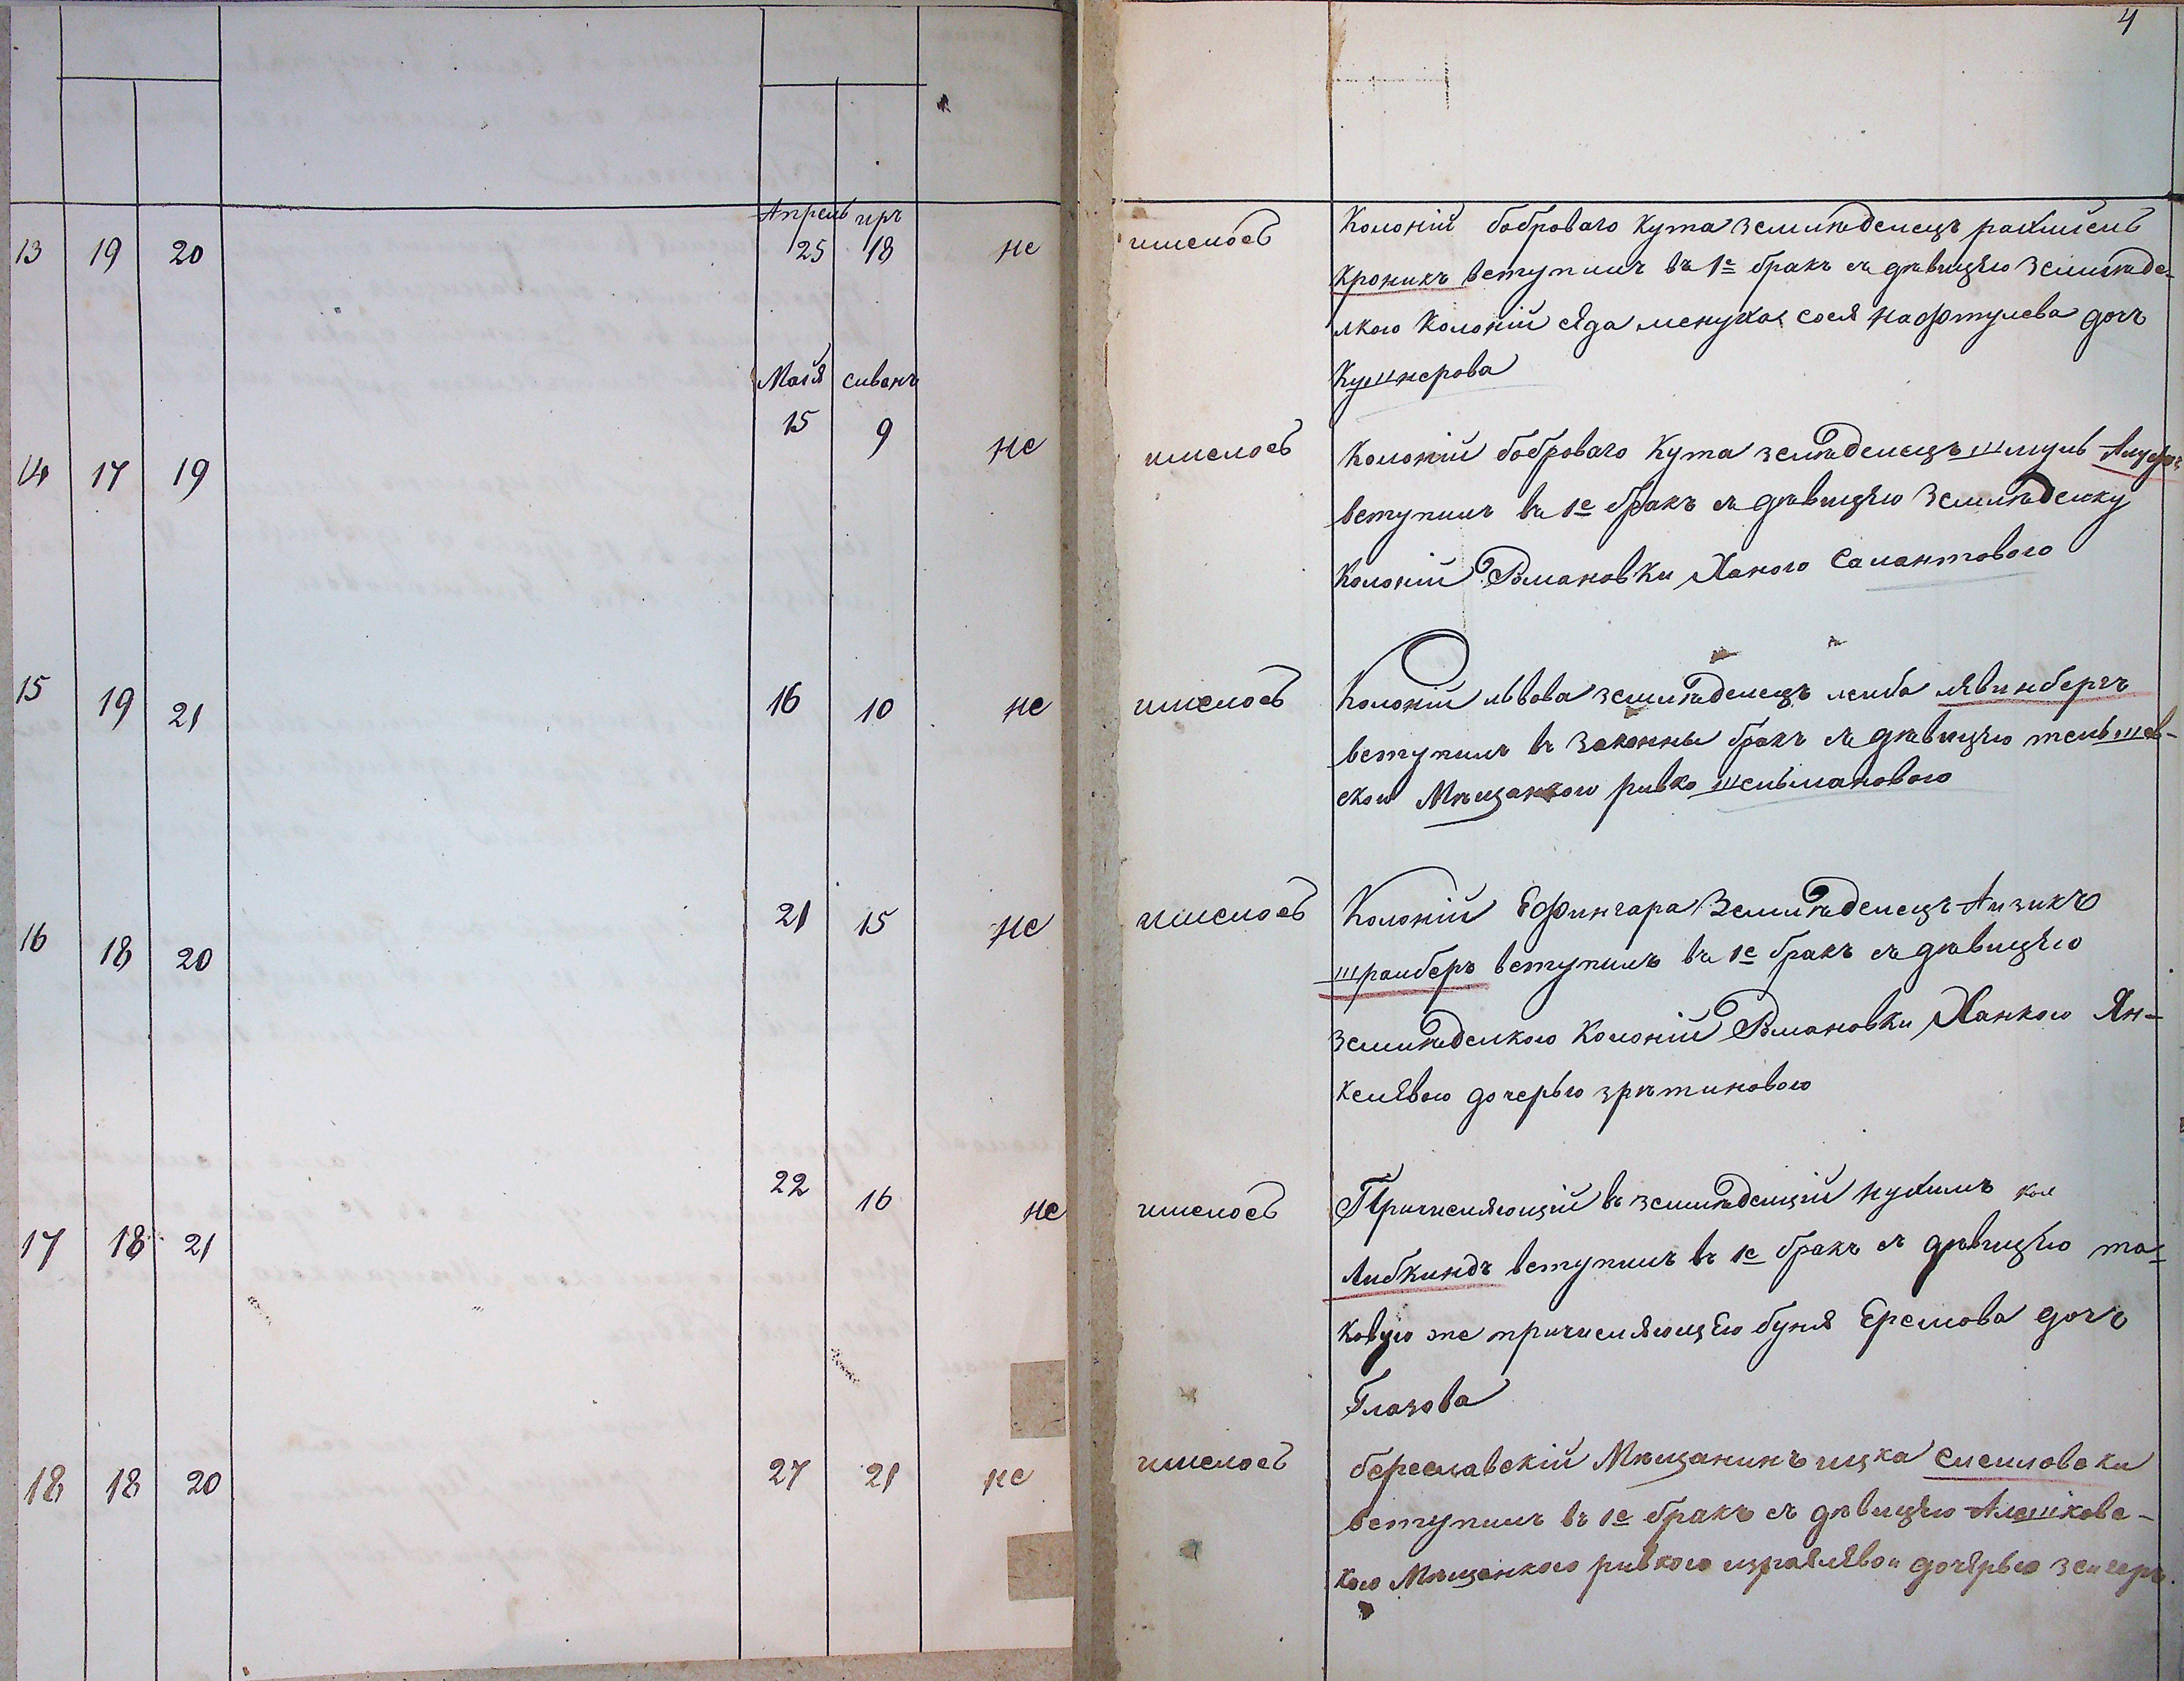 4
Апрель иръ
13 19 20 25 18 не имелось
Колоній боброваго Кута Земшлѣделецъ рахмиель
Кроникъ вступилъ въ 1е бракъ съ дѣвицѣю Земшлѣде-
лкою Колоній сяда менухая сося Нафтулева дочъ
Кушнерова
Маія сиванъ
14 17 19 15 9 не имелось
Колоній боброваго Кута земшлѣделецъ шмуль
вступилъ въ 1е бракъ съ дѣвицѣю Земшлѣделку
Колоній Романовки Ханою Салантовою
15 19 21 16 10 не имелось
Колоній львова земшлѣделецъ лейба лявинбергъ
вступилъ въ Законны бракъ съ дѣвицѣю тельшев-
скои Мѣщанкою ривко шельмановою
16 18 20 21 15 не имелось
Колоній Ефингара Земшлѣделецъ Аизикъ
шраиберъ вступилъ въ 1е бракъ съ дѣвицѣю
Земшлѣделкою Колоній Романовки Ханкою Ян-
келявою дочерью зрѣтиновою
17 18 21 22 16 не имелось
Причисляющій въ земшлѣделцій нухимъ кол
Либкиндъ вступилъ въ 1е бракъ съ дѣвицѣю та-
ковую же причисляющѣю буня Еремова дочъ
Глазова
18 18 20 27 21 не имелось
береславскій Мѣщанинъ ицка слемловски
вступилъ въ 1е бракъ съ дѣвицѣю Алешковс-
кою Мѣщанкою ривкою израялявои дочярью зейгеръ.